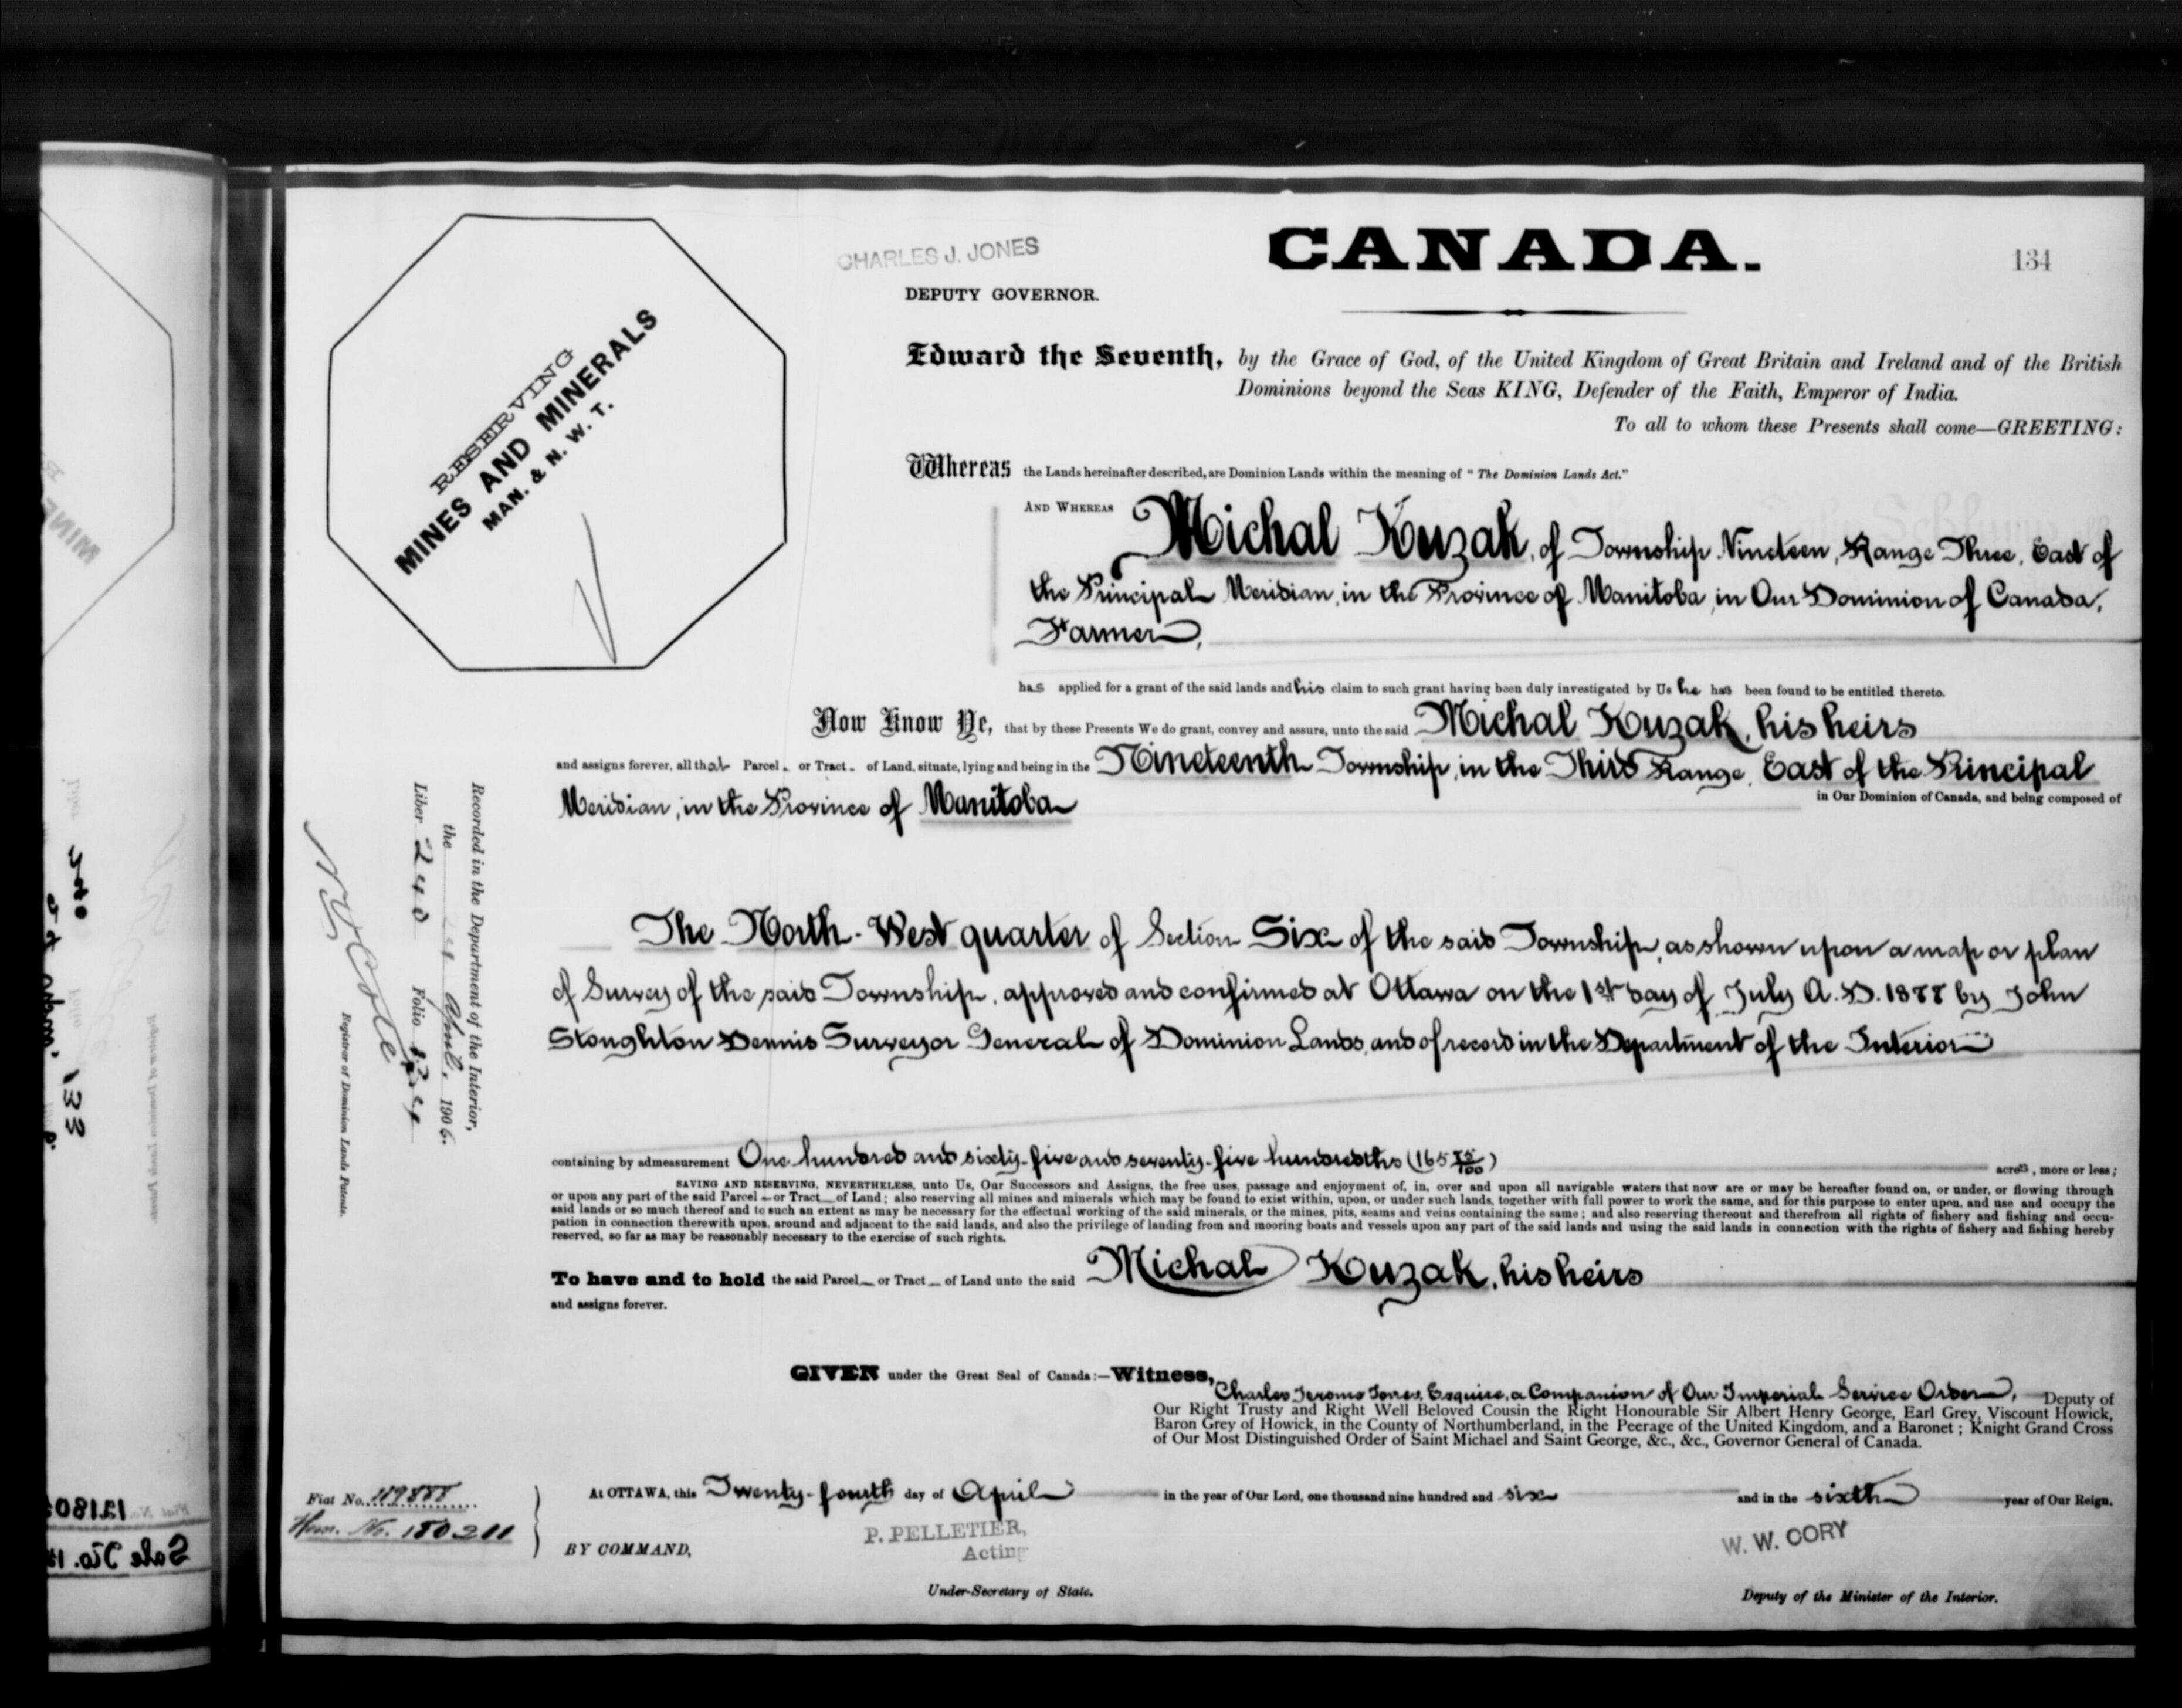 CHARLES J. JONES
CANADA.
134
DEPUTY GOVERNOR.
RESERVING
MINES AND MINERALS
MAN. & N. W. T.
Edward the Seventh, by the Grace of God, of the United Kingdom of Great Britain and Ireland and of the British
Dominions beyond the Seas KING, Defender of the Faith, Emperor of India.
To all to whom these Presents shall come—GREETING:
Whereas the Lands hereinafter described, are Dominion Lands within the meaning of "The Dominion Lands Act."
AND WHEREAS Michal Kuzak, of Township Nineteen, Range Three, East of
the Principal Meridian, in the Province of Manitoba, in Our Dominion of Canada,
Farmer,
has applied for a grant of the said lands and his claim to such grant having been duly investigated by Us he has been found to be entitled thereto.
Now Know Ye, that by these Presents We do grant, convey and assure, unto the said Michal Kuzak, his heirs
and assigns forever, all that Parcel or Tract of Land, situate, lying and being in the Nineteenth Township, in the Third Range, East of the Principal
Meridian, in the Province of Manitoba
in Our Dominion of Canada, and being composed of
The North-West quarter of Section Six of the said Township, as shown upon a map or plan
of Survey of the said Township, approved and confirmed at Ottawa on the 1st day of July A.D. 1877 by John
Stoughton Dennis Surveyor General of Dominion Lands, and of record in the Department of the Interior
containing by admeasurement One hundred and sixty-five and seventy-five hundredths (165 75/100) acres, more or less;
SAVING AND RESERVING, NEVERTHELESS, unto Us, Our Successors and Assigns, the free uses, passage and enjoyment of, in, over and upon all navigable waters that now are or may be hereafter found on, or under, or flowing through
or upon any part of the said Parcel or Tract of Land; also reserving all mines and minerals which may be found to exist within, upon, or under such lands, together with full power to work the same, and for this purpose to enter upon, and use and occupy the
said lands or so much thereof and to such an extent as may be necessary for the effectual working of the said minerals, or the mines, pits, seams and veins containing the same; and also reserving thereout and therefrom all rights of fishery and fishing and occu-
pation in connection therewith upon, around and adjacent to the said lands, and also the privilege of landing from and mooring boats and vessels upon any part of the said lands and using the said lands in connection with the rights of fishery and fishing hereby
reserved, so far as may be reasonably necessary to the exercise of such rights.
To have and to hold the said Parcel or Tract of Land unto the said Michal Kuzak, his heirs
and assigns forever.
GIVEN under the Great Seal of Canada:—Witness,
Charles Jerome Jones, Esquire, a Companion of Our Imperial Service Order, Deputy of
Our Right Trusty and Right Well Beloved Cousin the Right Honourable Sir Albert Henry George, Earl Grey, Viscount Howick,
Baron Grey of Howick, in the County of Northumberland, in the Peerage of the United Kingdom, and a Baronet; Knight Grand Cross
of Our Most Distinguished Order of Saint Michael and Saint George, &c., &c., Governor General of Canada.
At OTTAWA, this Twenty-fourth day of April in the year of Our Lord, one thousand nine hundred and six and in the sixth year of Our Reign.
BY COMMAND,
P. PELLETIER,
Acting
Under-Secretary of State.
W. W. CORY
Deputy of the Minister of the Interior.
Fiat No.
Hom. No. 180211
Recorded in the Department of the Interior,
the April, 1906.
Liber 240 Folio 134
Registrar of Dominion Lands Patents.